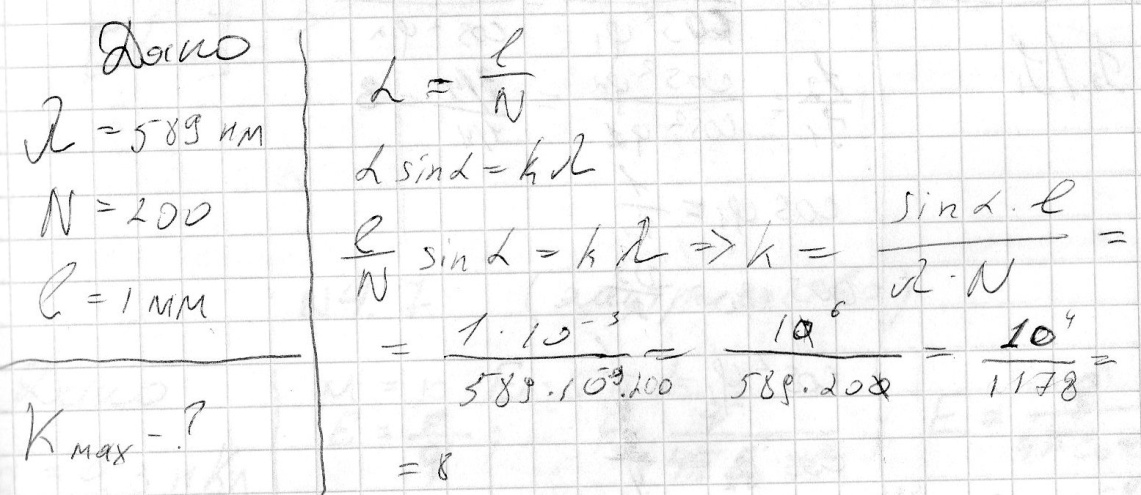 Дано
λ = 589 нм
N = 200
l = 1 мм
Kmax - ?
d = l/N
d sin α = kλ
l/N sin α = kλ => k = (sin α · l)/(λ · N) =
= (1 · 10⁻³)/(589 · 10⁻⁹ · 200) = 10⁶/(589 · 200) = 10⁴/1178 =
= 8